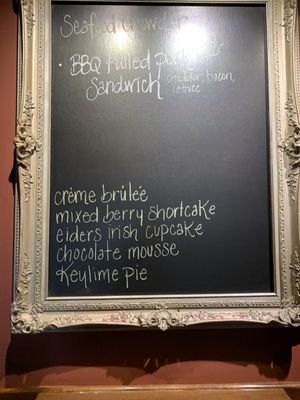 Seafood Chowder
· BBQ Pulled Pork
Sandwich cheddar, bacon,
lettuce
crème brûleé
mixed berry shortcake
eiders irish cupcake
chocolate mousse
Keylime Pie